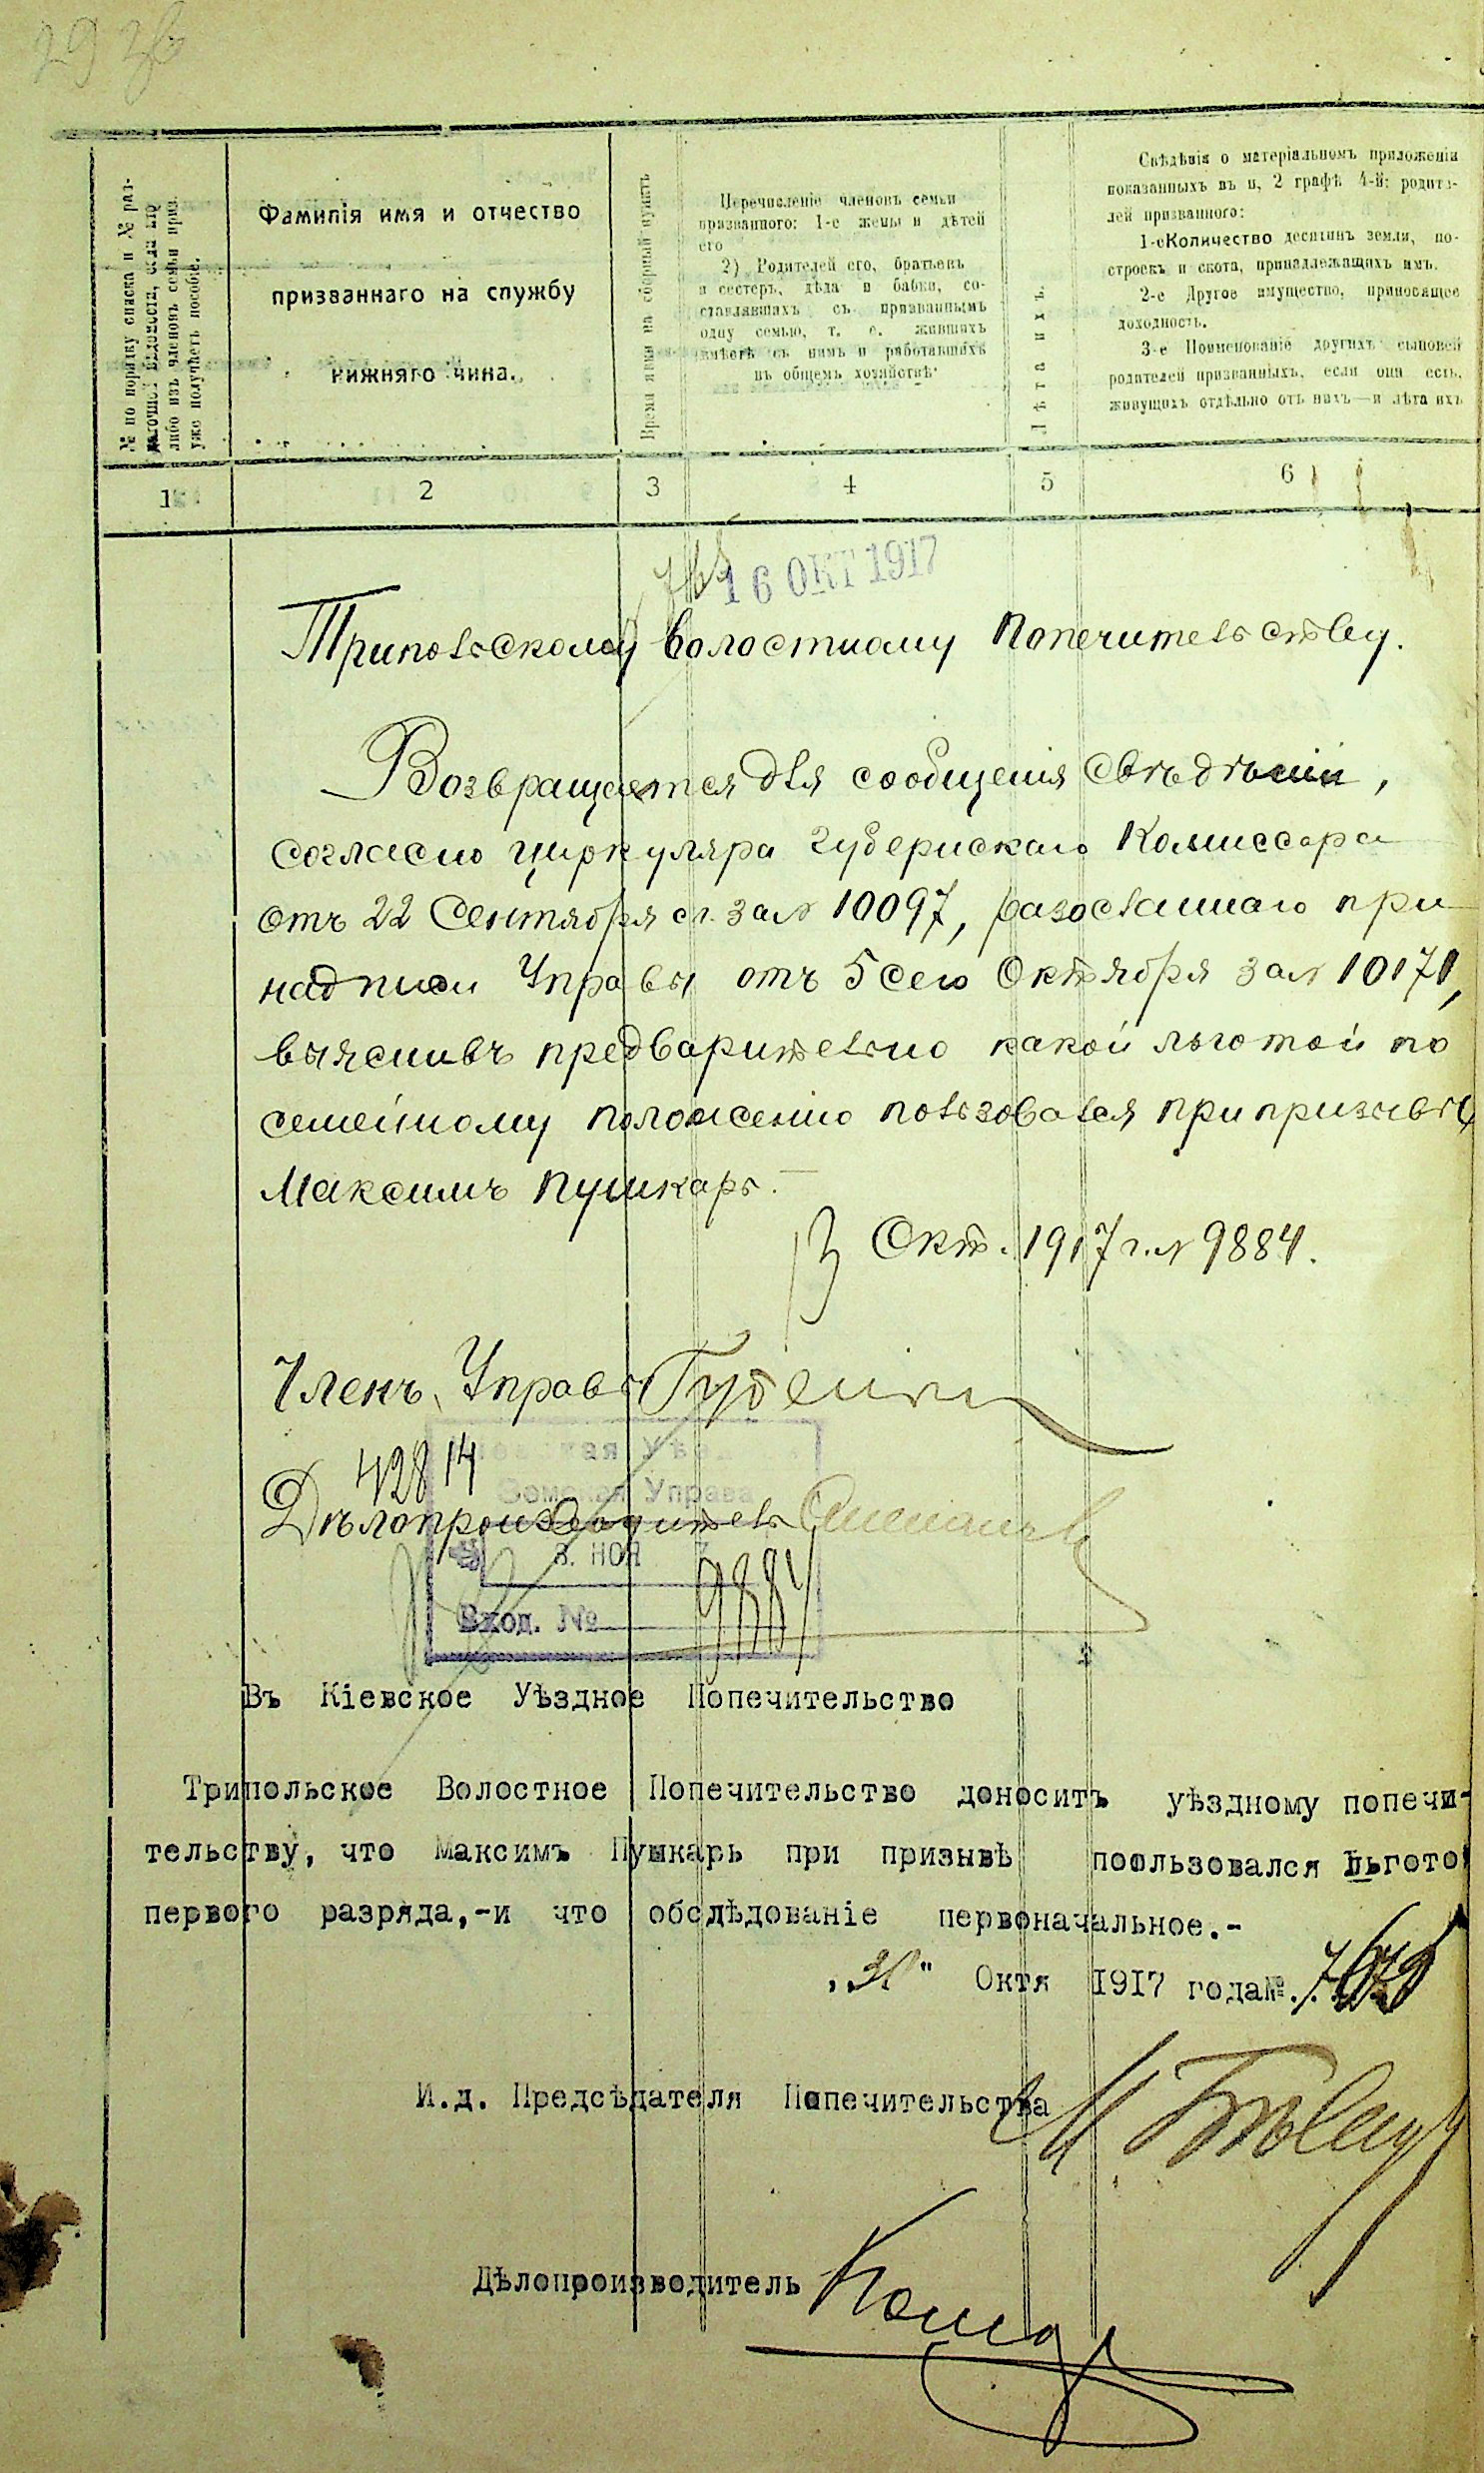 № по порядку списка и № раз-
даточной вѣдомости, если кто
либо изъ членовъ семьи приз.
уже получаетъ пособіе.
Фамилія имя и отчество
призваннаго на службу
нижняго чина.
Время явки на сборный пунктъ
Перечисленіе членовъ семьи
призваннаго: 1-е жены и дѣтей
его
2) Родителей его, братьевъ
и сестеръ, дѣда и бабки, со-
ставлявшихъ съ призваннымъ
одну семью, т. е. жившихъ
вмѣстѣ съ нимъ и работавшихъ
въ общемъ хозяйствѣ
Лѣта ихъ.
Свѣдѣнія о матеріальномъ приложеніи
показанныхъ въ п, 2 графѣ 4-й: родите-
лей призваннаго:
1-еКоличество десятинъ земли, по-
строекъ и скота, принадлежащихъ имъ.
2-е Другое имущество, приносящее
доходность.
3-е Поименованіе другихъ сыновей
родителей призванныхъ, если они есть,
живущихъ отдѣльно отъ нихъ—и лѣта ихъ
1 2 3 4 5 6
16 ОКТ 1917
Трипольскому Волостному Попечительству.
Возвращается для сообщенія свѣдѣній,
согласно циркуляра Губернскаго Комиссара
отъ 22 Сентября с.г. за № 10097, разосланнаго при
надписи Управы отъ 5 сего Октября за № 10171,
выяснивъ предварительно какой льготой по
семейному положенію пользовался при призывѣ
Максимъ Пушкарь.
13 Окт. 1917 г. № 9884.
Членъ Управы
42814
Земская Управа
Дѣлопроизводитель
3. НОЯ
Вход. № 9884
Въ Кіевское Уѣздное Попечительство
Трипольское Волостное Попечительство доноситъ уѣздному попечи-
тельству, что Максимъ Пушкарь при призывѣ поользовался льгото
первого разряда,-и что обслѣдованіе первоначальное.-
Октя 1917 года№.
И.д. Предсѣдателя Попечительства
Дѣлопроизводитель